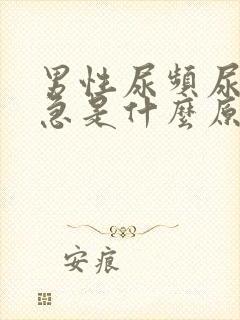 男性尿頻尿
急是什麼原
安痕